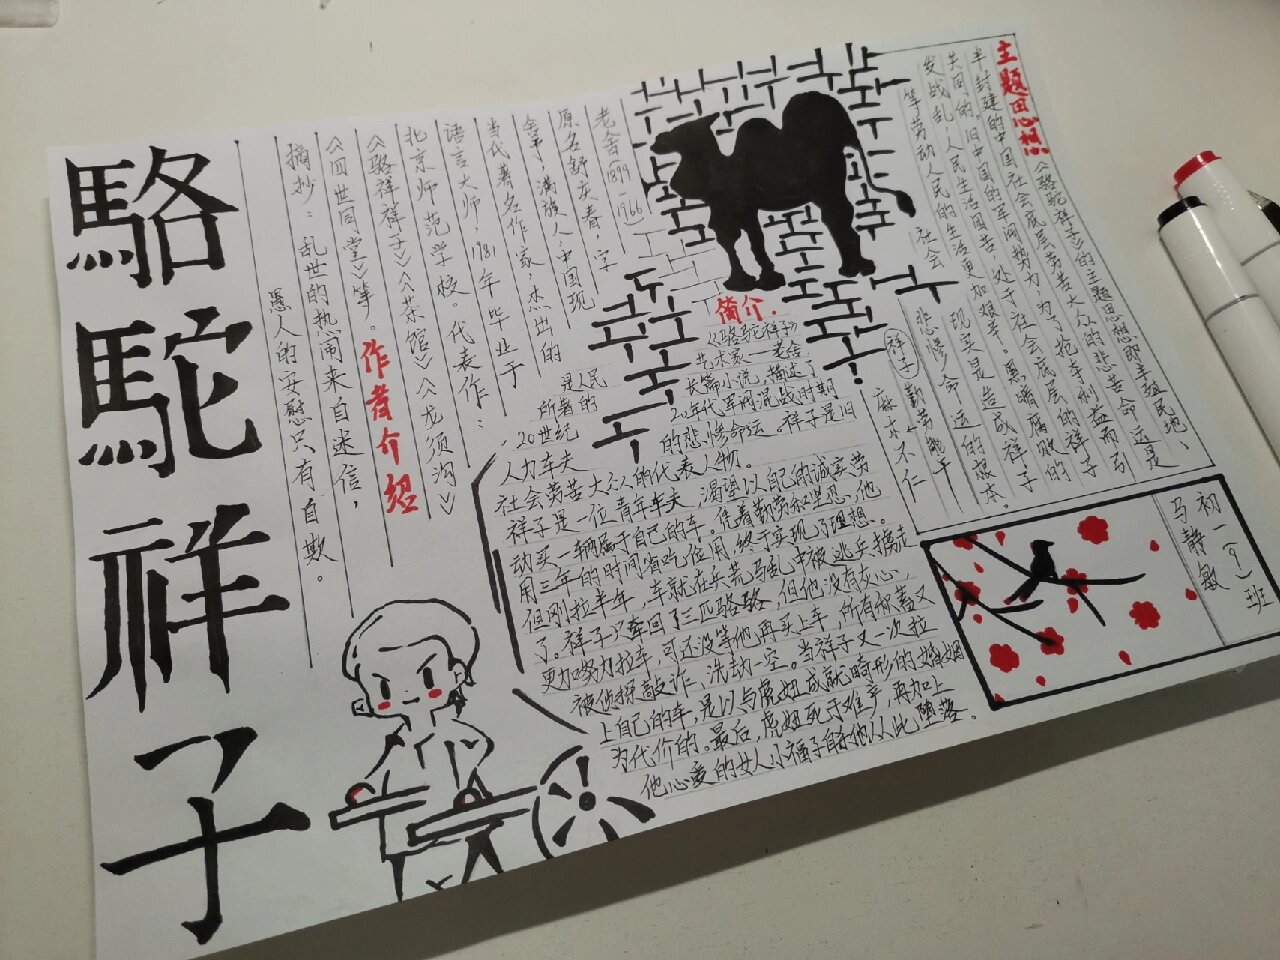 駱駝祥子
主题思想
《骆驼祥子》的主题思想即半殖民地、
半封建的中国社会底层劳苦大众的悲苦命运是
共同的。旧中国的军阀势力,为了抢夺利益而引
发战乱,人民生活困苦,处于社会底层的祥子
等劳动人民的生活更加艰辛。黑暗腐败的
社会现实是造成祥子
悲惨命运的根本。
祥子
勤劳
麻木不仁
初一(9)班
马静敏
老舍(1899
1966)
原名舒庆春,字
舍予,满族人,中国现
当代著名作家,杰出的
语言大师,1981年毕业于
北京师范学校。代表作:
《骆祥祥子》《茶馆》《龙须沟》
《四世同堂》等。
作者介绍
摘抄:乱世的热闹来自迷信,
愚人的安慰只有自欺。
简介:
《骆驼祥子》
是人民艺术家——老舍
所著的长篇小说,描述了
20世纪20年代军阀混战时期
人力车夫的悲惨命运。祥子是旧
社会劳苦大众的代表人物。
祥子是一位青年车夫,渴望以自己的诚实劳
动买一辆属于自己的车。凭着勤劳和坚忍,他
用三年的时间省吃俭用,终于实现了理想。
但刚拉半年,车就在兵荒马乱中被逃兵掳走
了。祥子只牵回了三匹骆骆,但他没有灰心,
更加努力拉车,可还没等他再买上车,所有积蓄又
被侦探敲诈、洗劫一空。当祥子又一次拉
上自己的车,是以与虎妞成就畸形的婚姻
为代价的。最后,虎妞死于难产,再加上
他心爱的女人小福子自他从此堕落。